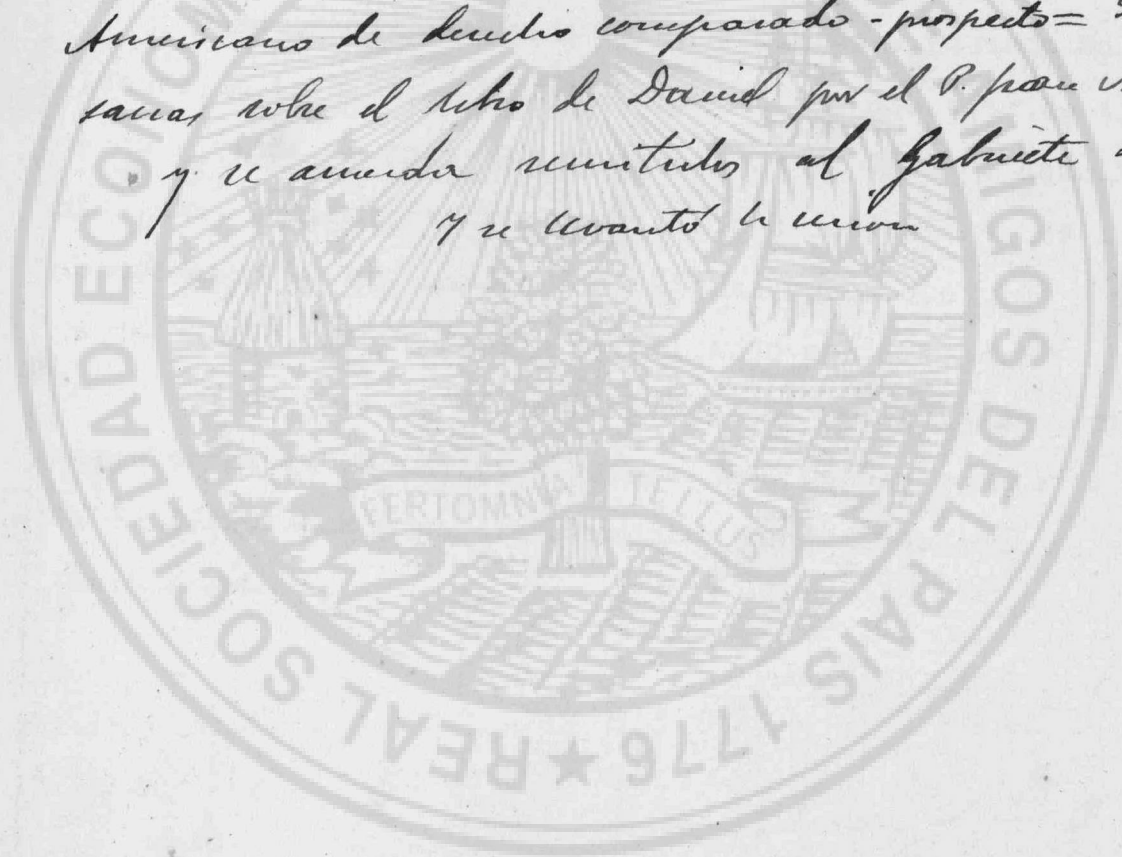 Americano de derecho comparado - prospecto =
sanas sobre el libro de Daniel por el P. Juan
y se acuerda remitirlos al Gabinete
y se levantó la sesion
REAL SOCIEDAD ECONOM
MIGOS DEL PAIS 1776 ★
FERTOMNIA TELLUS